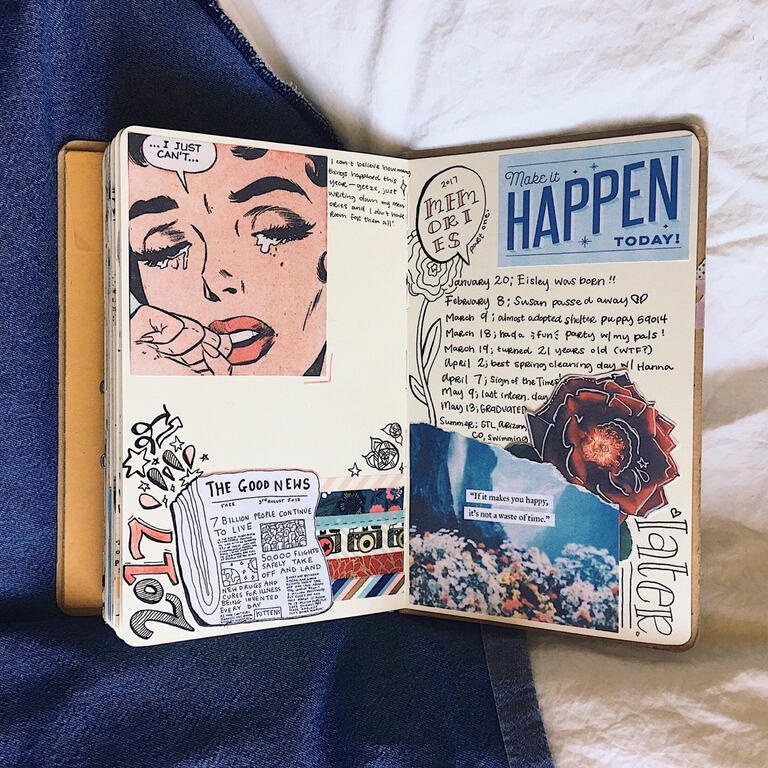 ... I JUST
CAN'T...
I can't believe how many
things happened this
year—geeze, just
writing down my mem
ories and I don't have
room for them all!
2017
THE GOOD NEWS
FREE 3RD AUGUST 2018
7 BILLION PEOPLE CONTINUE
TO LIVE
50,000 FLIGHTS
SAFELY TAKE
OFF AND LAND
NEW DRUGS AND
CURES FOR ILLNESS
BEING INVENTED
EVERY DAY
KITTENS
2017
MEM
ORI
ES
part one:
Make it
HAPPEN
TODAY!
January 20; Eisley was born!!
February 8; Susan passed away
March 9; almost adopted shelter puppy
March 18; had a fun party w/ my pals!
March 19; turned 21 years old (WTF?)
April 2; best spring cleaning day w/ Hanna
April 7; Sign of the Times
May 9; last intern. day
May 13; GRADUATED
Summer; GTL, Arizona
CO, swimming
"If it makes you happy,
it's not a waste of time."
later